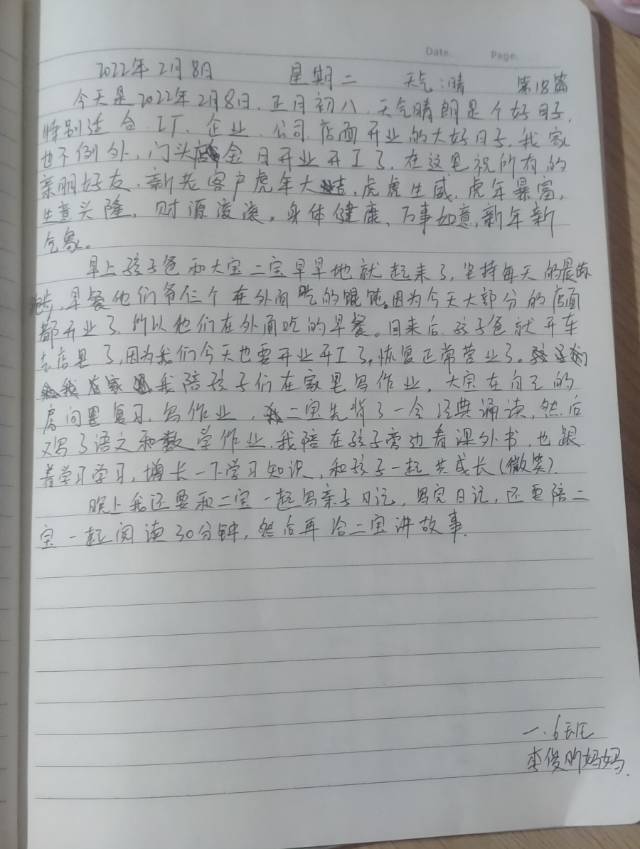 Date. Page.
2022年2月8日 星期二 天气:晴 第18篇
今天是2022年2月8日,正月初八,天气晴朗是个好日子,
特别适合工厂、企业、公司、店面开业的大好日子,我家
也不例外,门头店今日开业开工了,在这里祝所有的
亲朋好友,新老客户虎年大吉,虎虎生威,虎年暴富,
生意兴隆,财源滚滚,身体健康,万事如意,新年新
气象。
早上孩子爸和大宝二宝早早地就起来了,坚持每天的晨练
跑步,早餐他们爷仨个在外面吃的馄饨,因为今天大部分的店面
都开业了,所以他们在外面吃的早餐。回来后,孩子爸就开车
去店里了,因为我们今天也要开业开工了,恢复正常营业了。
我陪孩子们在家里写作业,大宝在自己的
房间里复习,写作业,二宝先背了一会经典诵读,然后
又写了语文和数学作业,我陪在孩子旁边看课外书,也跟
着学习学习,增长一下学习知识,和孩子一起共成长(微笑)
晚上我还要和二宝一起写亲子日记,写完日记,还要陪二
宝一起阅读30分钟,然后再给二宝讲故事.
一.6班
李俊昕妈妈.